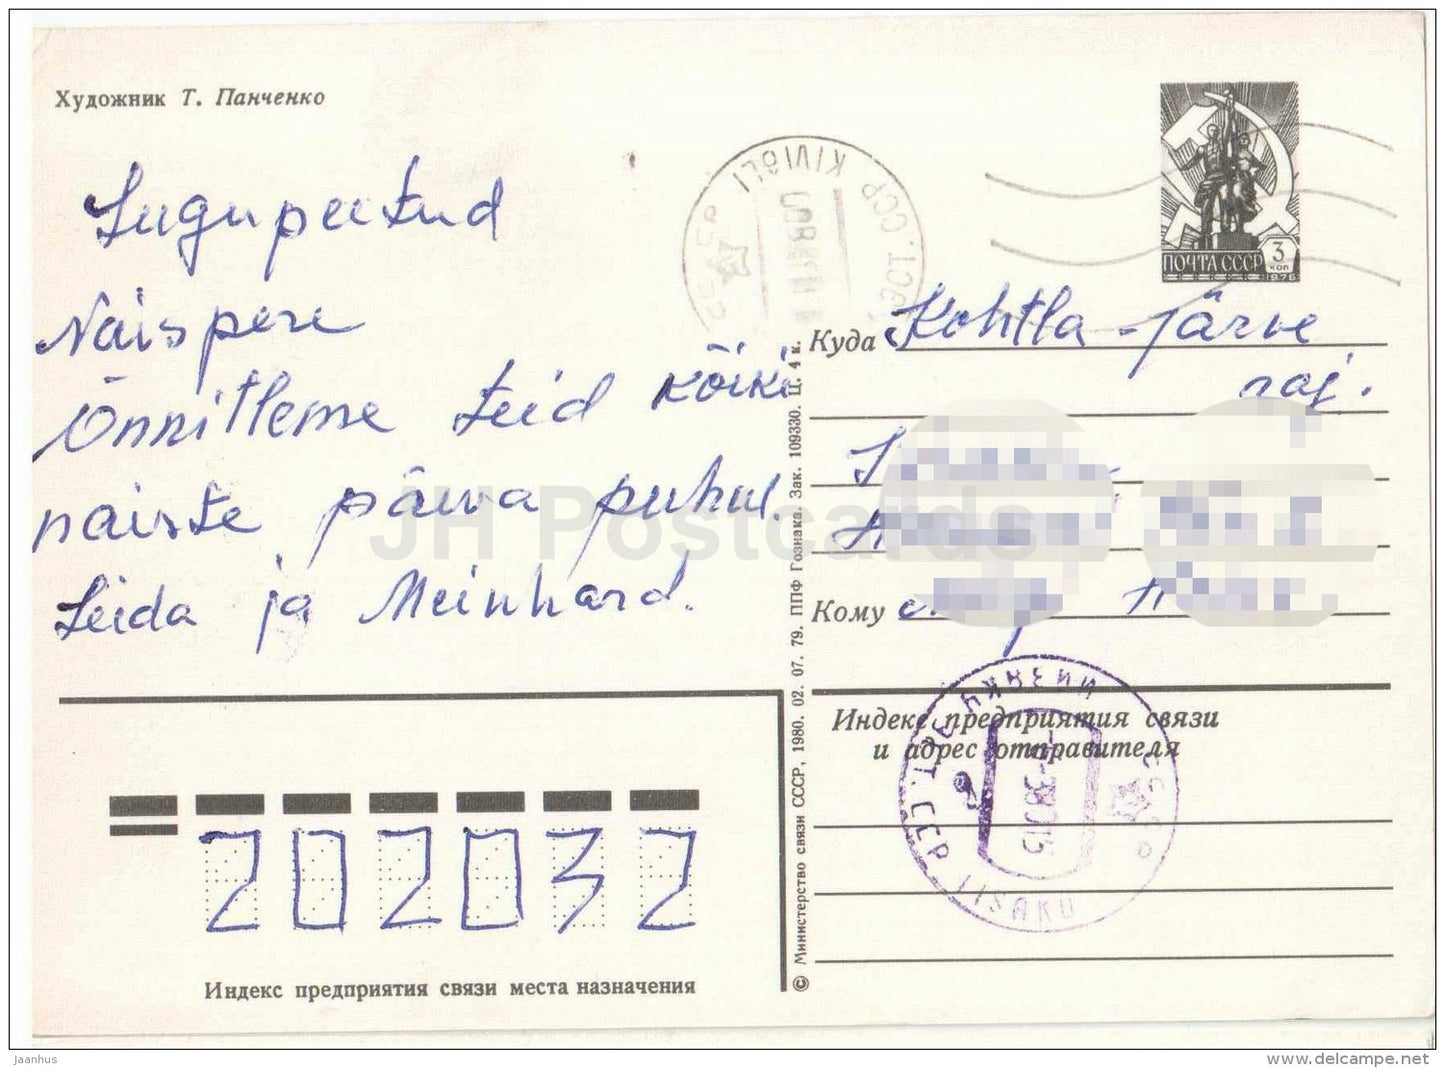 Художник Т. Панченко
Lugupeetud
Naispere
Õnnitleme teid kõiki
naiste päeva puhul.
Leida ja Meinhard.
ПОЧТА СССР 3 коп
1976
KIVIÕLI
Куда Kohtla-järve
raj.
Кому
Индекс предприятия связи
и адрес отправителя
IISAKU
202032
Индекс предприятия связи места назначения
© Министерство связи СССР, 1980. 02. 07. 79. ППФ Гознака. Зак. 109330. Ц. 4 к.
JH Postcards
jaanhus
https://www.delcampe.net